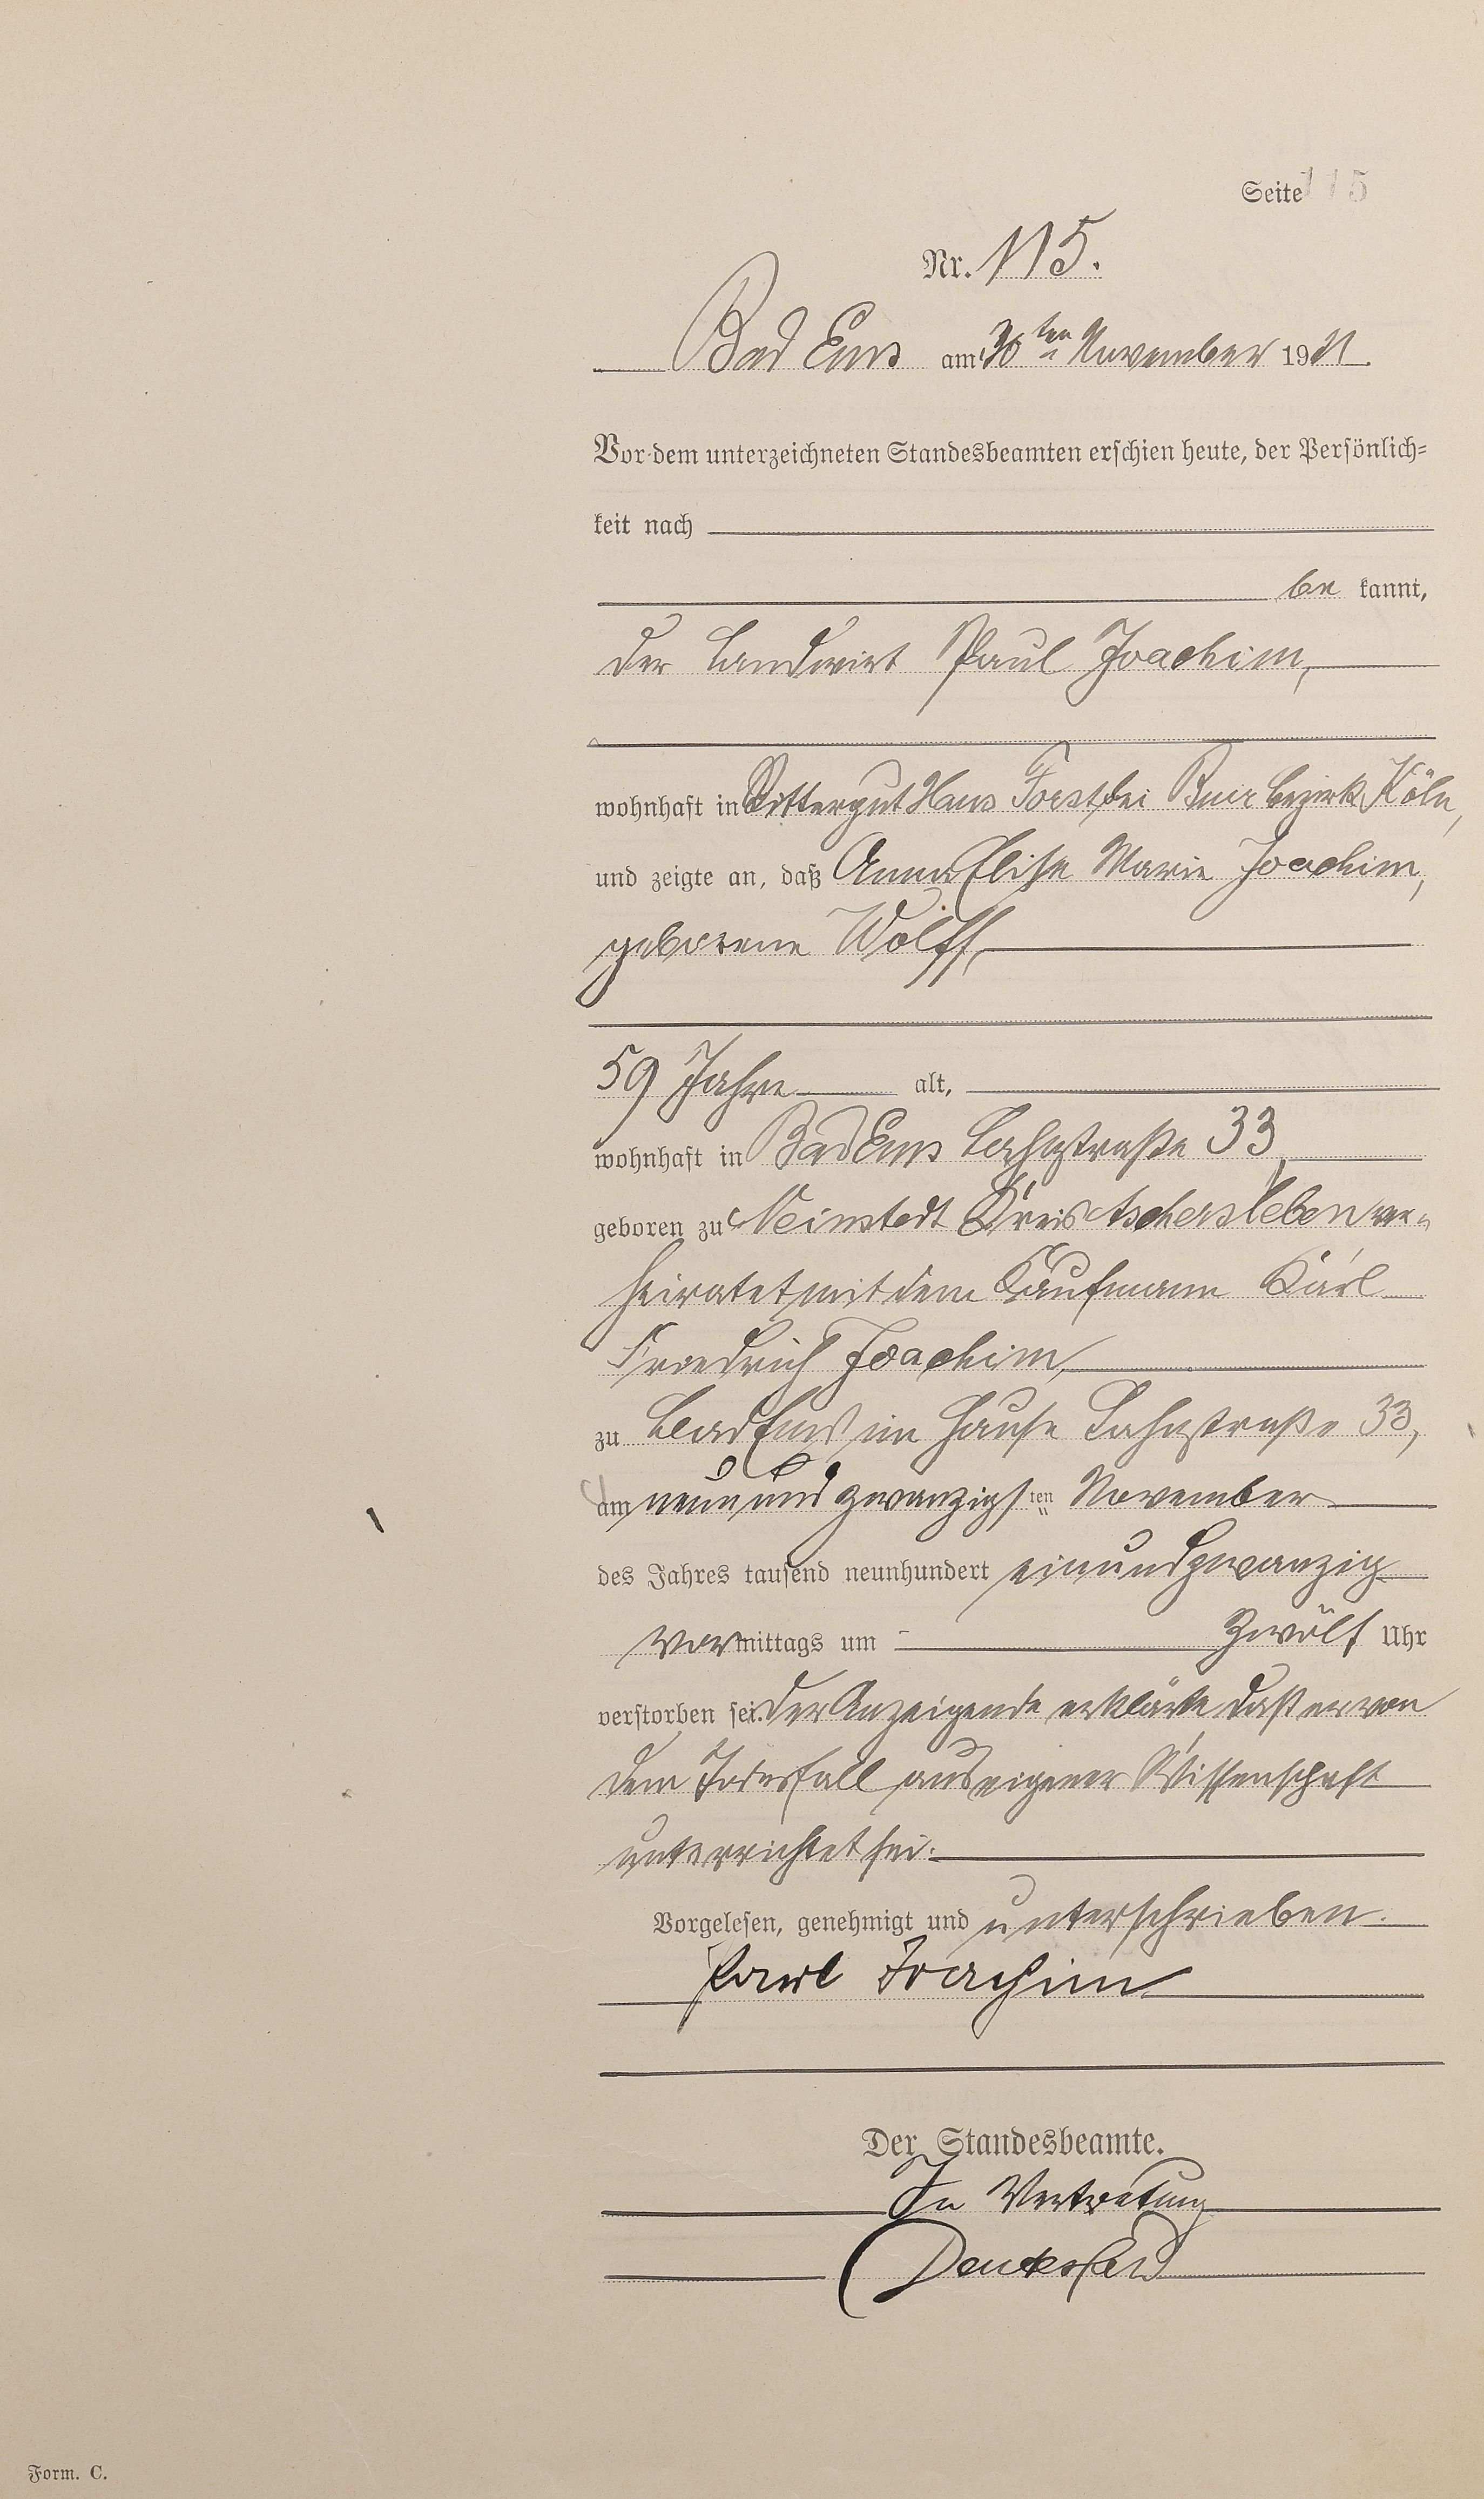 Seite 115
Nr. 115.
Bad Ems am 30ten November 1921.
Vor dem unterzeichneten Standesbeamten erschien heute, der Persönlich-
keit nach
be kannt,
der Landwirt Paul Joachim,
wohnhaft in Rittergut Haus Forst bei Buir Bezirk Köln,
und zeigte an, daß Anna Elise Marie Joachim,
geborene Wolff,
59 Jahre alt,
wohnhaft in Bad Ems Lahnstraße 33,
geboren zu Neinstedt Kreis Aschersleben ver-
heiratet mit dem Kaufmann Karl
Friedrich Joachim,
zu Bad Ems im Hause Lahnstraße 33,
am neunundzwanzigsten November
des Jahres tausend neunhundert einundzwanzig
vormittags um zwölf Uhr
verstorben sei. Der Anzeigende erklärte daß er von
dem Todesfall aus eigener Wissenschaft
unterrichtet sei.
Vorgelesen, genehmigt und unterschrieben.
Paul Joachim
Der Standesbeamte.
In Vertretung
Form. C.